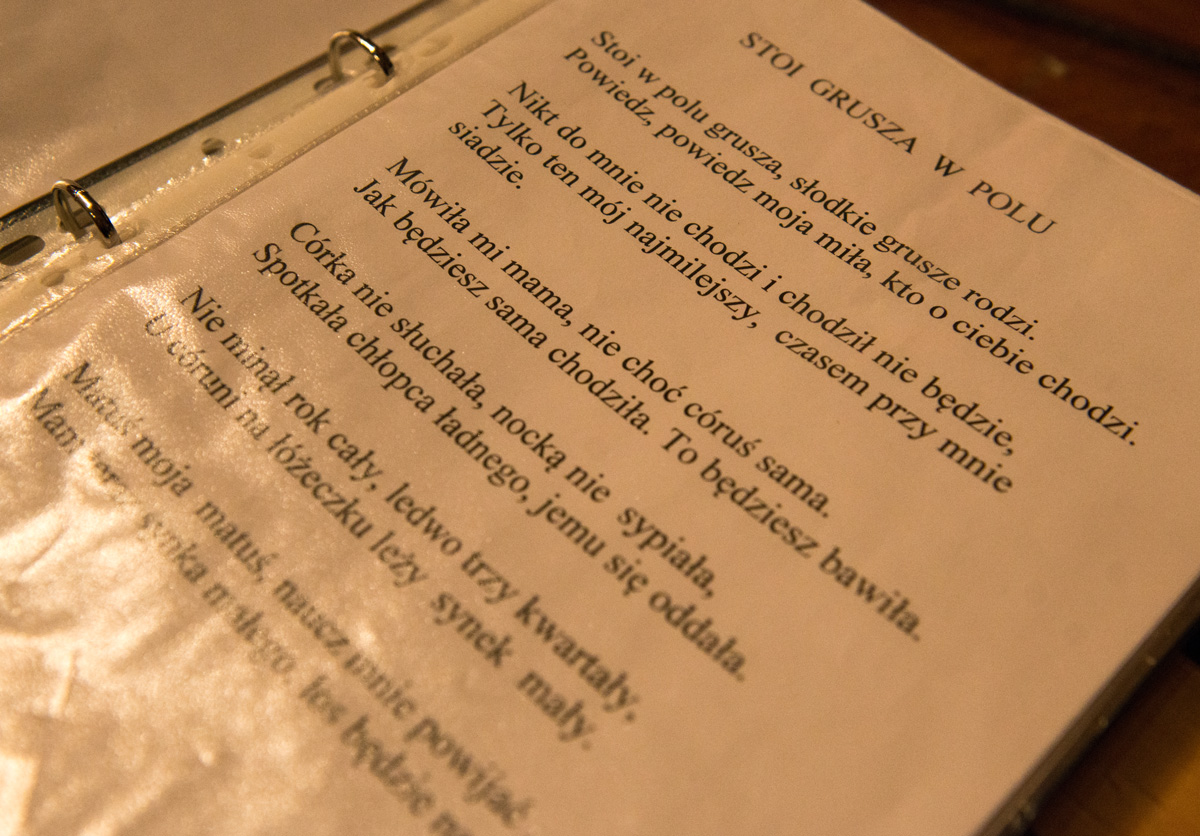 STOI GRUSZA W POLU
Stoi w polu grusza, słodkie grusze rodzi.
Powiedz, powiedz moja miła, kto o ciebie chodzi.
Nikt do mnie nie chodzi i chodził nie będzie,
Tylko ten mój najmilejszy, czasem przy mnie
siadzie.
Mówiła mi mama, nie choć córuś sama.
Jak będziesz sama chodziła. To będziesz bawiła.
Córka nie słuchała, nocką nie sypiała,
Spotkała chłopca ładnego, jemu się oddała.
Nie minął rok cały, ledwo trzy kwartały,
U córuni na łóżeczku leży synek mały.
Matuś moja matuś, naucz mnie powijać
synka małego, los będzie